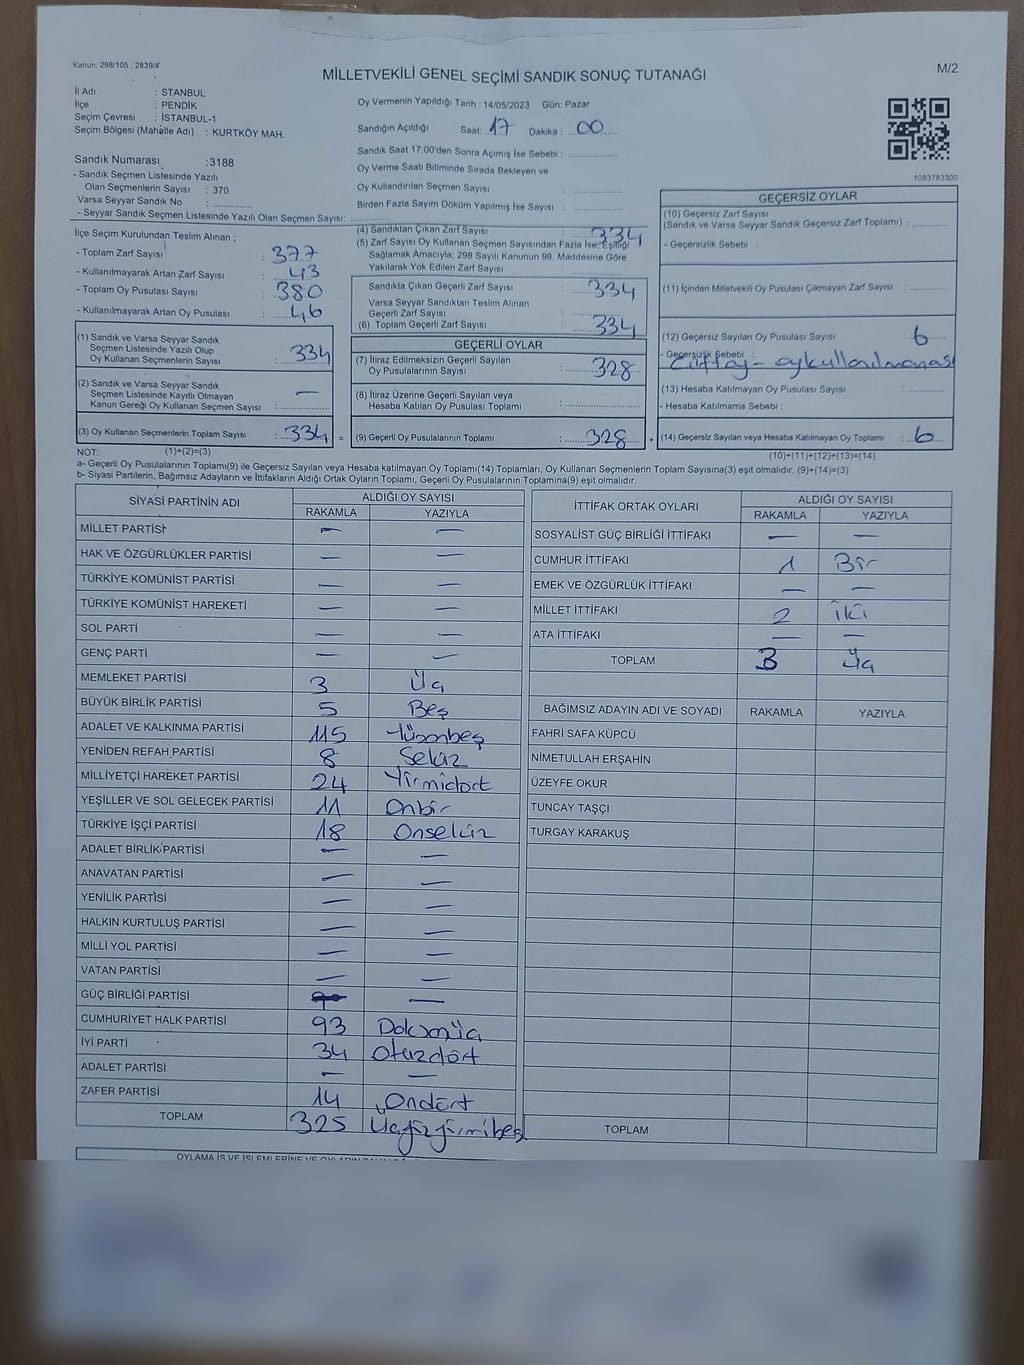 Kanun: 298/105 , 2839/4'
MİLLETVEKİLİ GENEL SEÇİMİ SANDIK SONUÇ TUTANAĞI
M/2
İl Adı : İSTANBUL
İlçe : PENDİK
Seçim Çevresi : İSTANBUL-1
Seçim Bölgesi (Mahalle Adı) : KURTKÖY MAH.
Oy Vermenin Yapıldığı Tarih : 14/05/2023 Gün: Pazar
Sandığın Açıldığı Saat: 17 Dakika : 00
Sandık Saat 17:00'den Sonra Açımış İse Sebebi :
Oy Verme Saati Bitiminde Sırada Bekleyen ve
Oy Kullandırılan Seçmen Sayısı :
Birden Fazla Sayım Döküm Yapılmış İse Sayısı :
1083783300
Sandık Numarası :3188
- Sandık Seçmen Listesinde Yazılı
Olan Seçmenlerin Sayısı : 370
Varsa Seyyar Sandık No :
- Seyyar Sandık Seçmen Listesinde Yazılı Olan Seçmen Sayısı:
İlçe Seçim Kurulundan Teslim Alınan ;
- Toplam Zarf Sayısı : 377
- Kullanılmayarak Artan Zarf Sayısı : 43
- Toplam Oy Pusulası Sayısı : 380
- Kullanılmayarak Artan Oy Pusulası : 46
(1) Sandık ve Varsa Seyyar Sandık
Seçmen Listesinde Yazılı Olup
Oy Kullanan Seçmenlerin Sayısı : 334
(2) Sandık ve Varsa Seyyar Sandık
Seçmen Listesinde Kayıtlı Olmayan
Kanun Gereği Oy Kullanan Seçmen Sayısı : —
(3) Oy Kullanan Seçmenlerin Toplam Sayısı : 334 =
(1)+(2)=(3)
(4) Sandıktan Çıkan Zarf Sayısı : 334
(5) Zarf Sayısı Oy Kullanan Seçmen Sayısından Fazla İse, Eşitliği
Sağlamak Amacıyla; 298 Sayılı Kanunun 98. Maddesine Göre
Yakılarak Yok Edilen Zarf Sayısı :
Sandıkta Çıkan Geçerli Zarf Sayısı : 334
Varsa Seyyar Sandıktan Teslim Alınan
Geçerli Zarf Sayısı :
(6) Toplam Geçerli Zarf Sayısı : 334
GEÇERLİ OYLAR
(7) İtiraz Edilmeksizin Geçerli Sayılan
Oy Pusulalarının Sayısı : 328
(8) İtiraz Üzerine Geçerli Sayılan veya
Hesaba Katılan Oy Pusulası Toplamı :
(9) Geçerli Oy Pusulalarının Toplamı : 328 +
GEÇERSİZ OYLAR
(10) Geçersiz Zarf Sayısı
(Sandık ve Varsa Seyyar Sandık Geçersiz Zarf Toplamı) :
- Geçersizlik Sebebi :
(11) İçinden Milletvekili Oy Pusulası Çıkmayan Zarf Sayısı :
(12) Geçersiz Sayılan Oy Pusulası Sayısı : 6
- Geçersizlik Sebebi :
(13) Hesaba Katılmayan Oy Pusulası Sayısı :
- Hesaba Katılmama Sebebi :
(14) Geçersiz Sayılan veya Hesaba Katılmayan Oy Toplamı : 6
(10)+(11)+(12)+(13)=(14)
NOT:
a- Geçerli Oy Pusulalarının Toplamı(9) ile Geçersiz Sayılan veya Hesaba katılmayan Oy Toplamı(14) Toplamları, Oy Kullanan Seçmenlerin Toplam Sayısına(3) eşit olmalıdır. (9)+(14)=(3)
b- Siyasi Partilerin, Bağımsız Adayların ve İttifakların Aldığı Ortak Oyların Toplamı, Geçerli Oy Pusulalarının Toplamına(9) eşit olmalıdır.
SİYASİ PARTİNİN ADI ALDIĞI OY SAYISI
RAKAMLA YAZIYLA
MİLLET PARTİSİ — —
HAK VE ÖZGÜRLÜKLER PARTİSİ — —
TÜRKİYE KOMÜNİST PARTİSİ — —
TÜRKİYE KOMÜNİST HAREKETİ — —
SOL PARTİ — —
GENÇ PARTİ — —
MEMLEKET PARTİSİ 3 Üç
BÜYÜK BİRLİK PARTİSİ 5 Beş
ADALET VE KALKINMA PARTİSİ 115 Yüzonbeş
YENİDEN REFAH PARTİSİ 8 Sekiz
MİLLİYETÇİ HAREKET PARTİSİ 24 Yirmidört
YEŞİLLER VE SOL GELECEK PARTİSİ 11 Onbir
TÜRKİYE İŞÇİ PARTİSİ 18 Onsekiz
ADALET BİRLİK PARTİSİ — —
ANAVATAN PARTİSİ — —
YENİLİK PARTİSİ — —
HALKIN KURTULUŞ PARTİSİ — —
MİLLİ YOL PARTİSİ — —
VATAN PARTİSİ — —
GÜÇ BİRLİĞİ PARTİSİ —
CUMHURİYET HALK PARTİSİ 93 Doksanüç
İYİ PARTİ 34 Otuzdört
ADALET PARTİSİ — —
ZAFER PARTİSİ 14 Ondört
TOPLAM 325 Üçyüzyirmibeş
İTTİFAK ORTAK OYLARI ALDIĞI OY SAYISI
RAKAMLA YAZIYLA
SOSYALİST GÜÇ BİRLİĞİ İTTİFAKI — —
CUMHUR İTTİFAKI 1 Bir
EMEK VE ÖZGÜRLÜK İTTİFAKI — —
MİLLET İTTİFAKI 2 İki
ATA İTTİFAKI — —
TOPLAM 3 Üç
BAĞIMSIZ ADAYIN ADI VE SOYADI RAKAMLA YAZIYLA
FAHRİ SAFA KÜPCÜ
NİMETULLAH ERŞAHİN
ÜZEYFE OKUR
TUNCAY TAŞÇI
TURGAY KARAKUŞ
TOPLAM